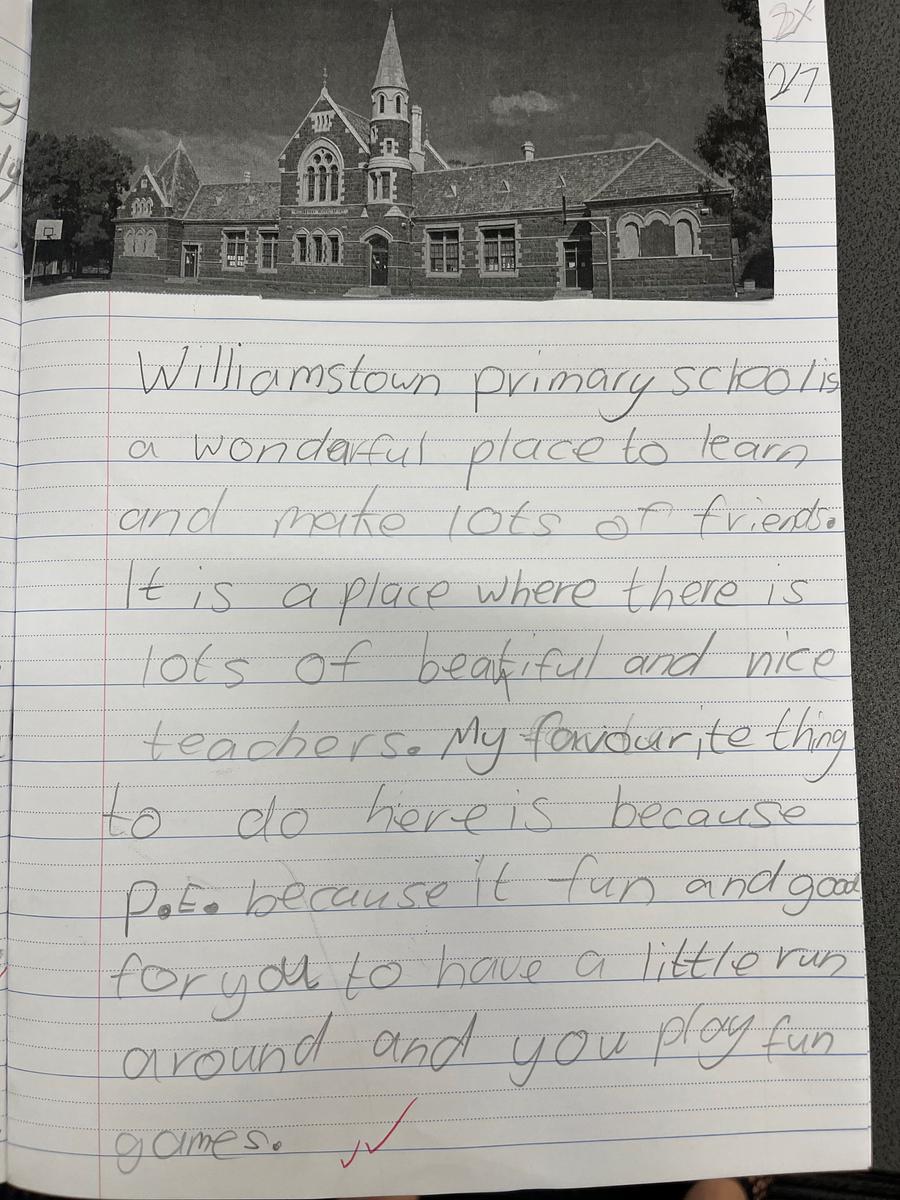 2/7
Williamstown primary school is
a wonderful place to learn
and make lots of friends.
It is a place where there is
lots of beatiful and nice
teachers. My favourite thing
to do here is because
P.E. because it fun and good
for you to have a little run
around and you play fun
games.